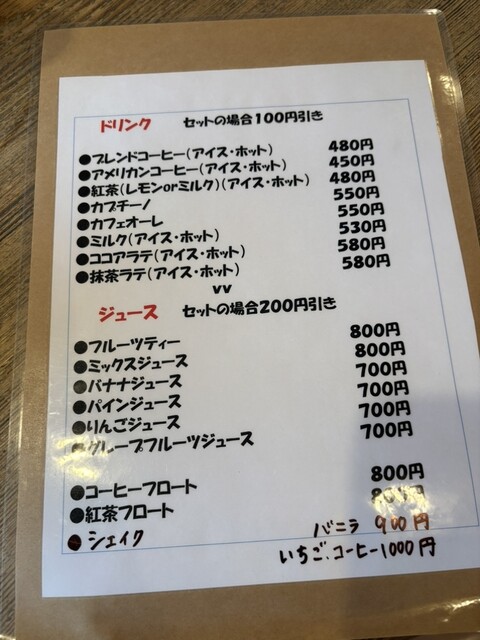 ドリンク セットの場合100円引き
●ブレンドコーヒー(アイス・ホット) 480円
●アメリカンコーヒー(アイス・ホット) 450円
●紅茶(レモンorミルク)(アイス・ホット) 480円
●カプチーノ 550円
●カフェオーレ 550円
●ミルク(アイス・ホット) 530円
●ココアラテ(アイス・ホット) 580円
●抹茶ラテ(アイス・ホット) 580円
vv
ジュース セットの場合200円引き
●フルーツティー 800円
●ミックスジュース 800円
●バナナジュース 700円
●パインジュース 700円
●りんごジュース 700円
●グレープフルーツジュース 700円
●コーヒーフロート 800円
●紅茶フロート 800円
●シェイク バニラ 900円
いちご、コーヒー1000円